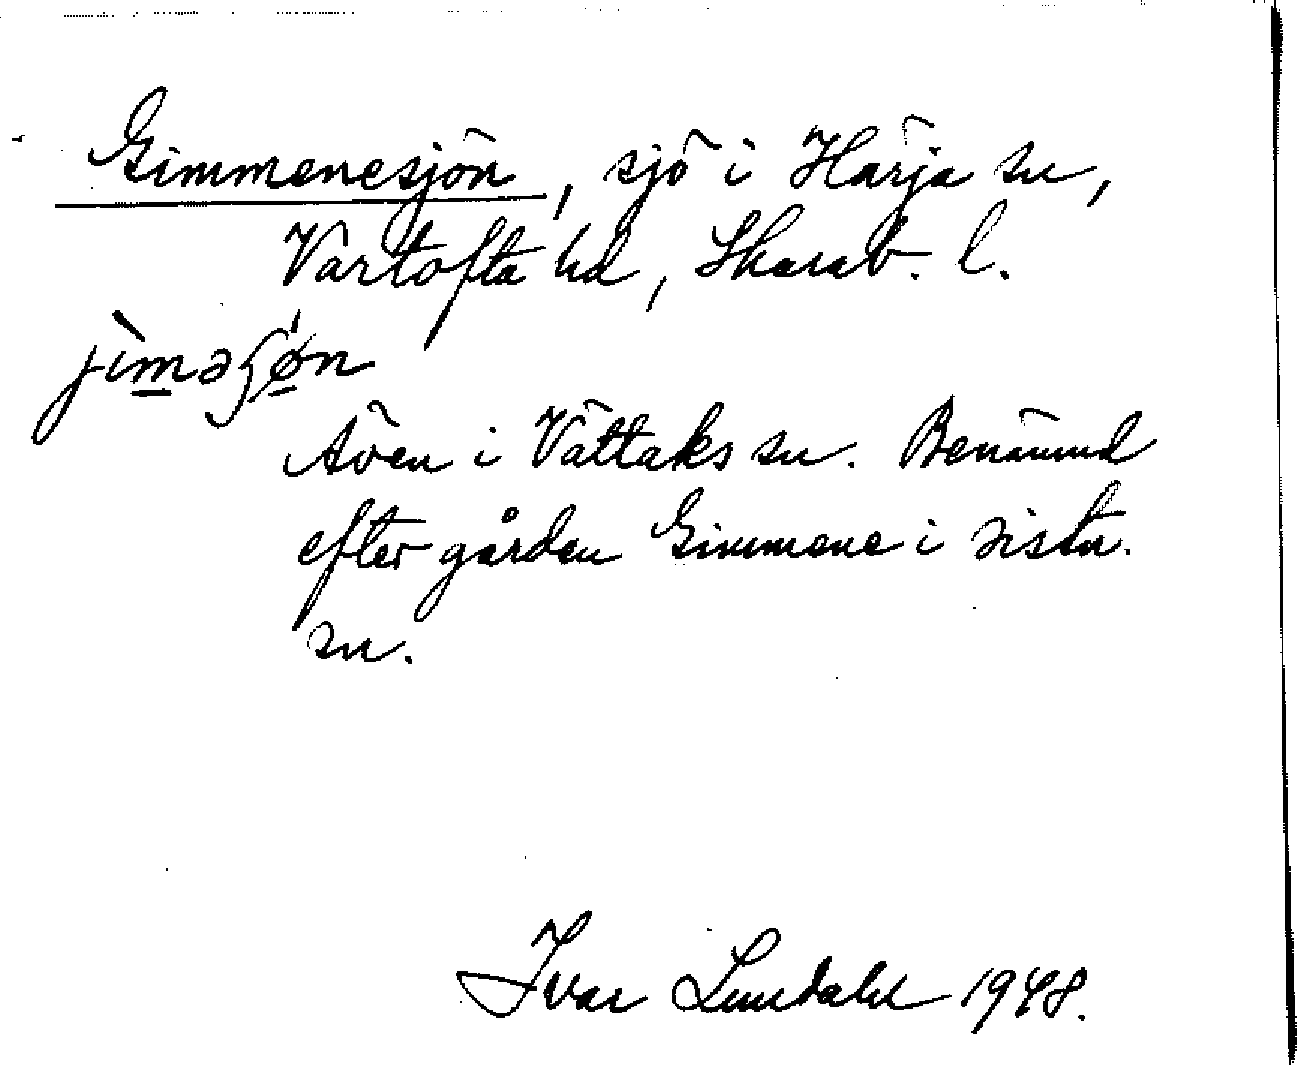 Gimmenesjön, sjö i Härja sn,
Vartofta hd, Skarab. l.
jìməʃø̀n
Även i Vättaks sn. Benämnd
efter gården Gimmene i sistn.
sn.
Ivar Lundahl 1948.